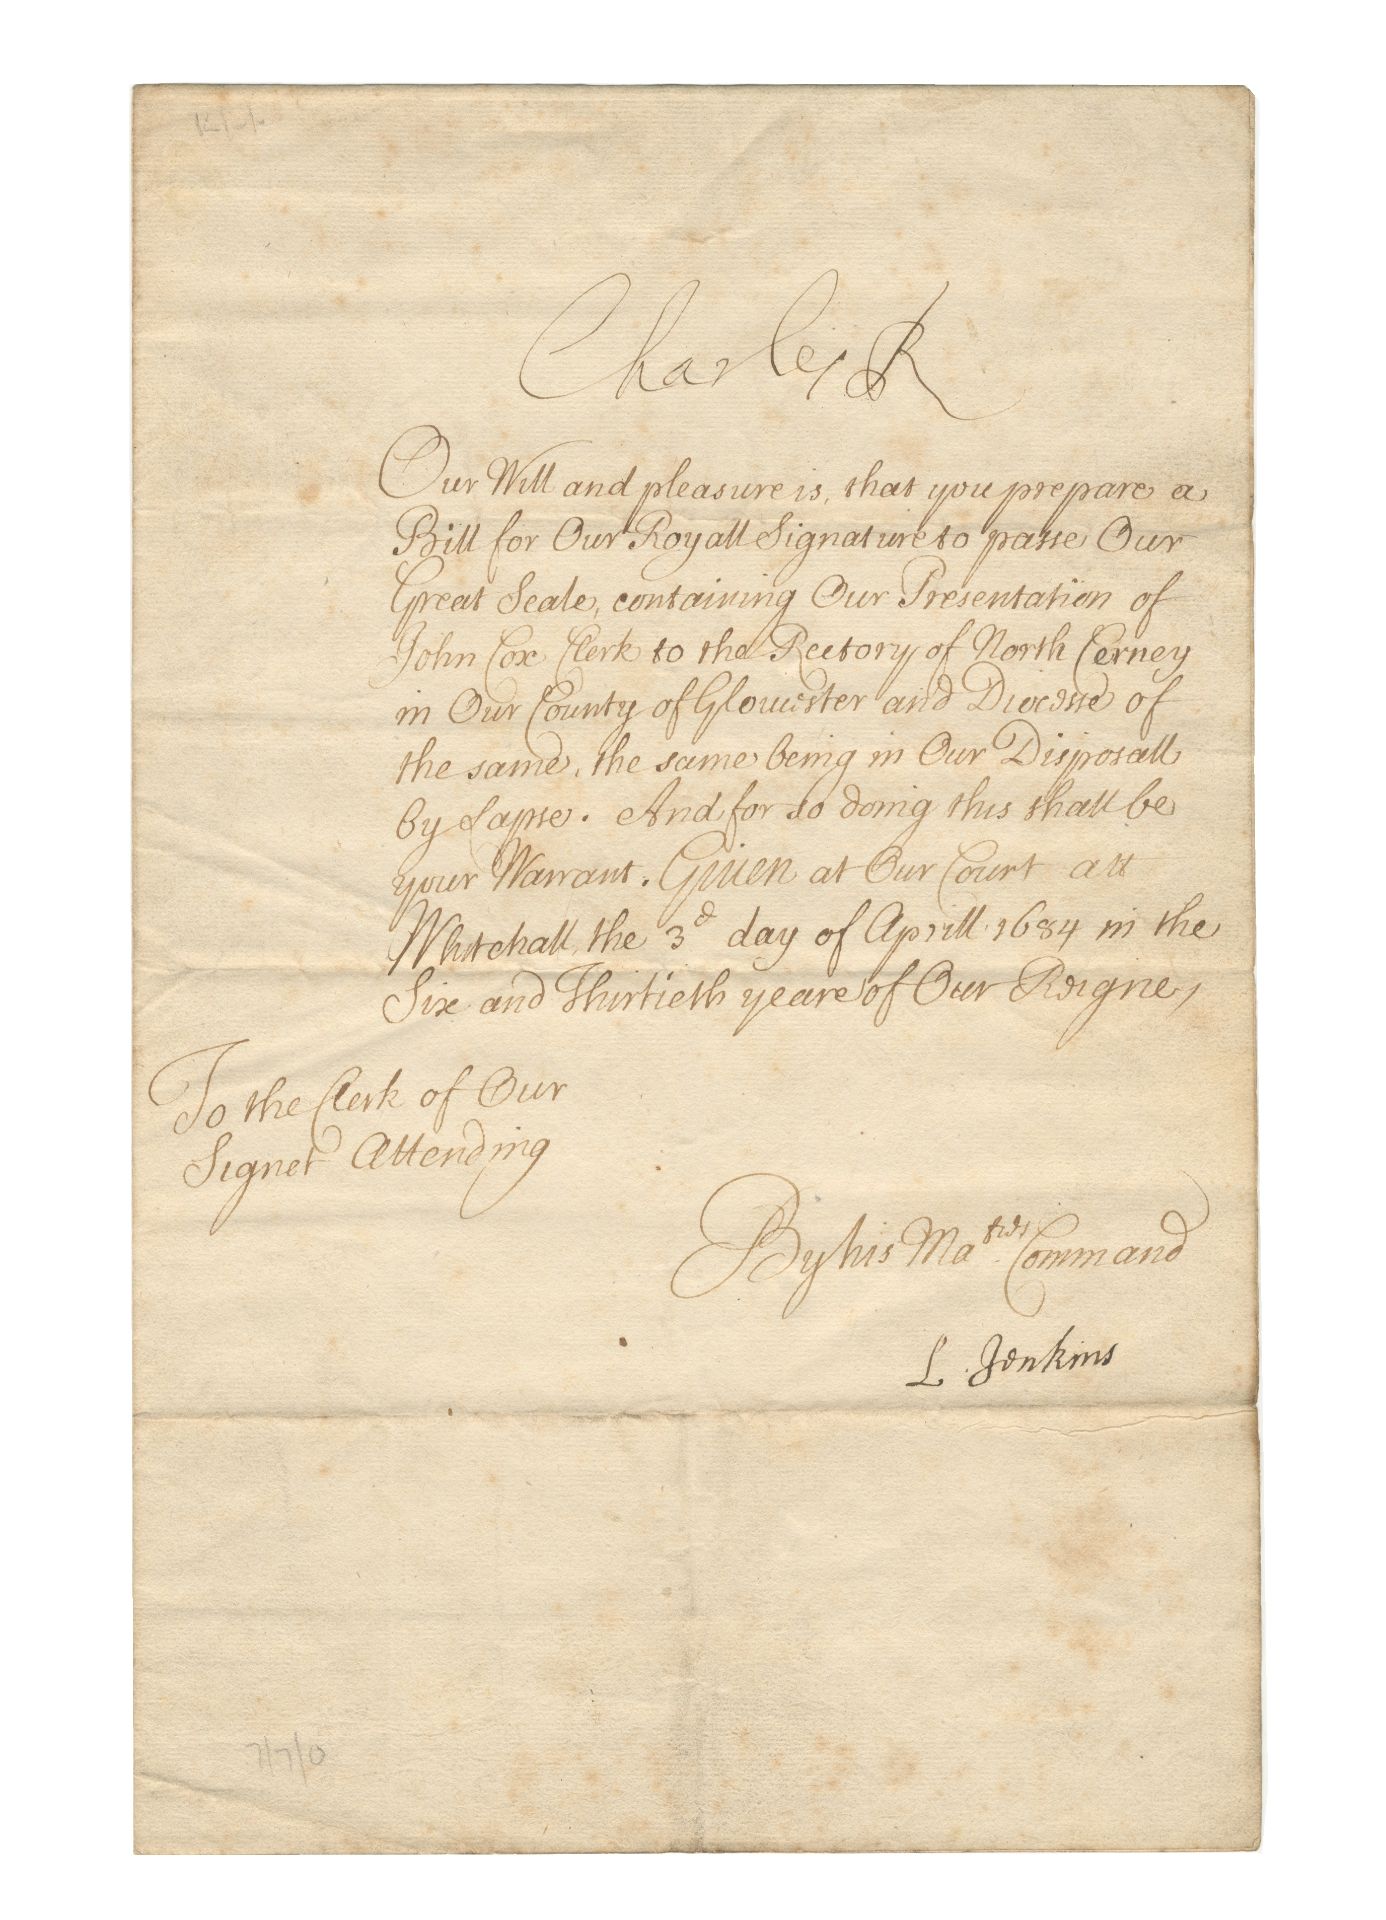 Charles R
Our Will and pleasure is, that you prepare a
Bill for Our Royall Signature to passe Our
Great Seale, containing Our Presentation of
John Cox Clerk to the Rectory of North Cerney
in Our County of Gloucester and Diocesse of
the same, the same being in Our Disposall
by Lapse. And for so doing this shall be
your Warrant. Given at Our Court att
Whitehall, the 3d day of Aprill 1684 in the
Six and Thirtieth yeare of Our Reigne,
To the Clerk of Our
Signet Attending
By his Maties Command
L. Jenkins
7/7/0